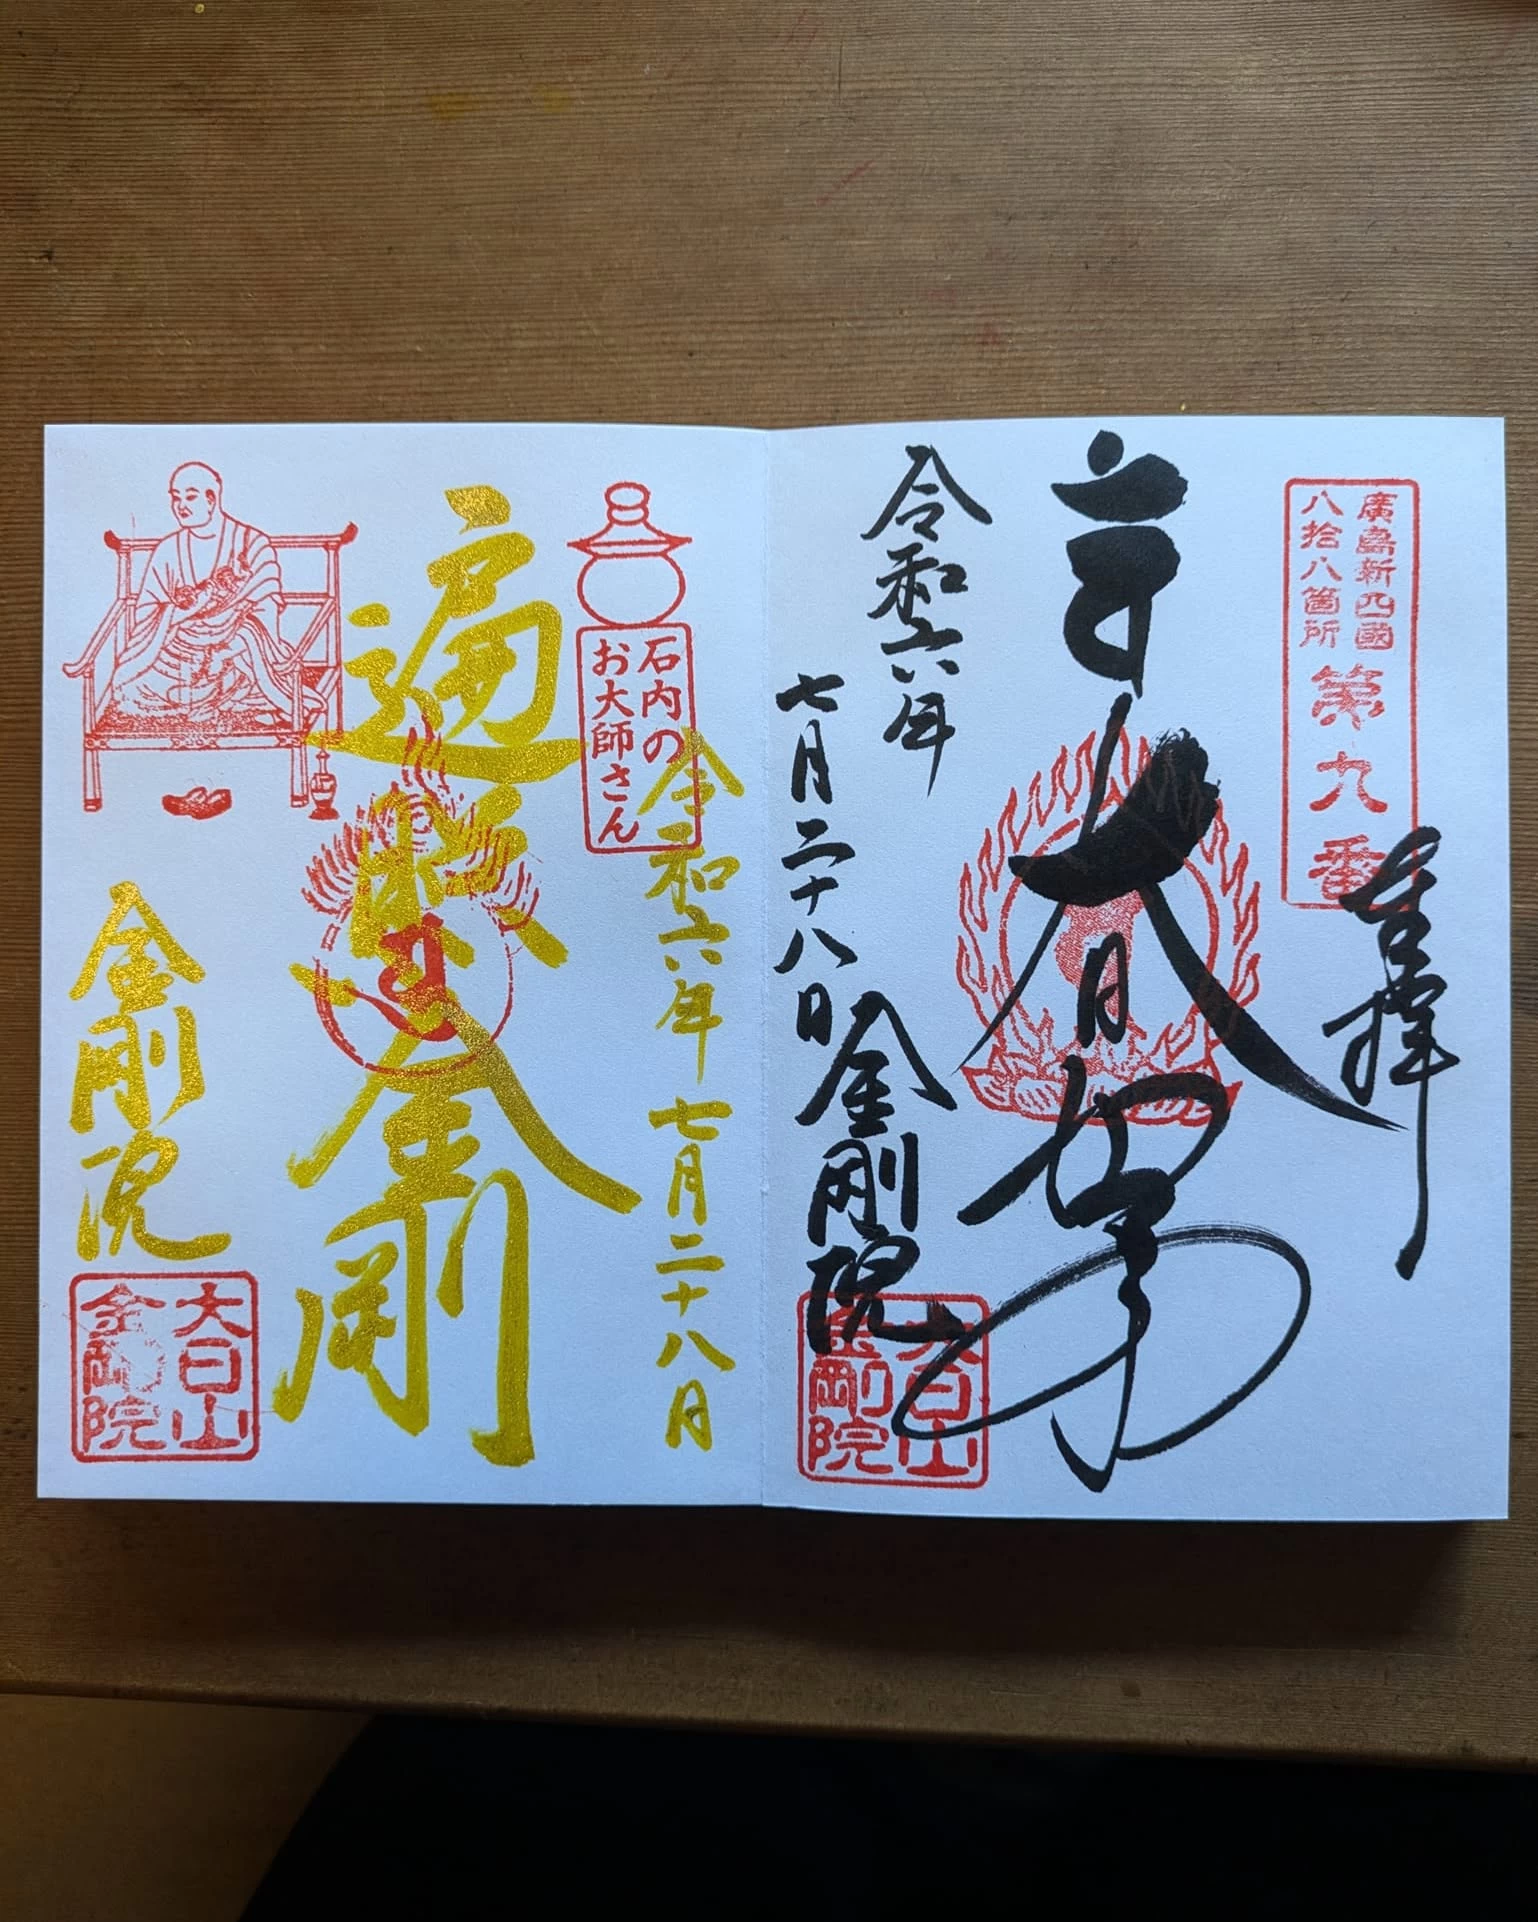 廣島新四國
八拾八箇所
第九番
奉拝
大日如来
令和六年
七月二十八日
金剛院
大日山
金剛院
石内の
お大師さん
令和六年七月二十八日
遍照金剛
金剛院
大日山
金剛院